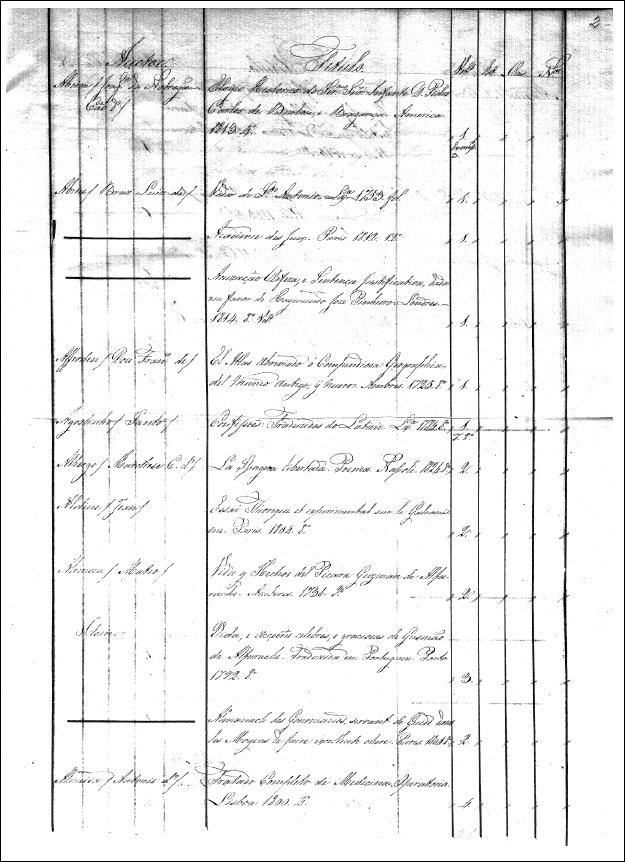 2
Auctor Titulo
Abreu / José
Elogio Historico do Sr. Infante D. Pedro
Carlos de Bourbon, e Bragança. America
1813. 4. 1
Abreu / Braz Luis de /
Vida de Sto Antonio. 1753 fol. 1
Academie des Jeux. Paris 1812. 12º 1
Defeza, e Sentença Justificativa, dada
em favor de Raymundo José Pinheiro. Londres
1814. 8º 1
Afferden / Don Franco de /
El Atlas abreviado o Compendiosa Geographia
del Mundo antigo, y nuevo. Amberes. 1725 8º 1
Agostinho / Santo /
Confissões. Traduzidas do Latim. Lxª 1784 8º 1
La Spagna liberata. Poema. Napoli. 8º 2
Aldini / Jean /
Essai Theorique et experimental sur le Galvanis
me. Paris. 1804. 8º 2
Aleman / Mateo /
Vida y Hechos del Picaro Guzman de Alfa
rache. Amberes. 1736. 8º 2
Vida, e acções celebres, e graciosas de Gusmão
de Alfarache. Traduzida em Portuguez. Porto
1792. 8º 3
Almanach des Gourmands, servant de Guide dans
les Moyens de faire excellente chere. Paris. 8º 2
Almeida / Antonio de /
Tratado Completo de Medicina Operatoria.
Lisboa 1800. 8º 4